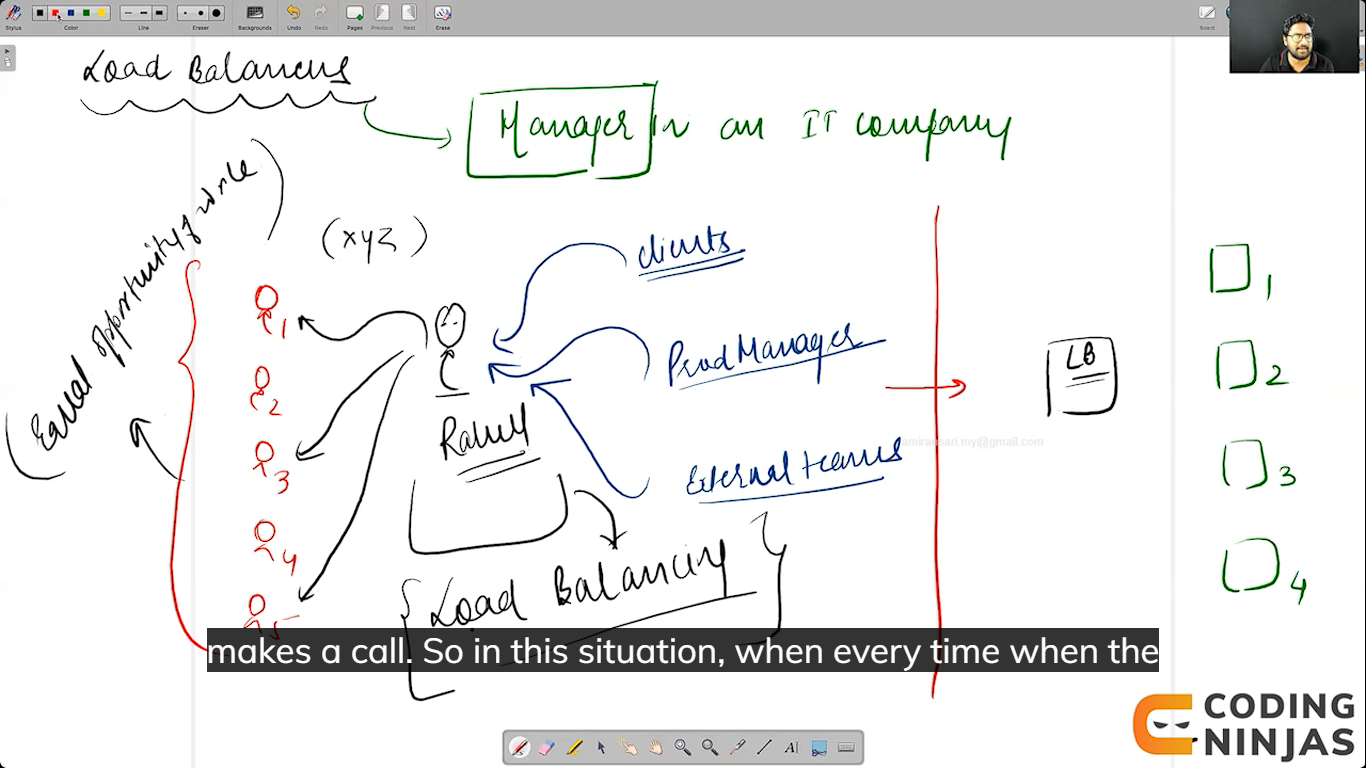 Stylus
Color
Line
Eraser
Backgrounds
Undo
Redo
Pages
Previous
Next
Erase
Board
Load Balancers
Manager in an IT company
(Equal opportunity of work)
(xyz)
clients
1
2
3
4
5
Prod Manager
Rahul
External teams
Load Balancing
LB
1
2
3
4
amiransari.my@gmail.com
makes a call. So in this situation, when every time when the
CODING
NINJAS